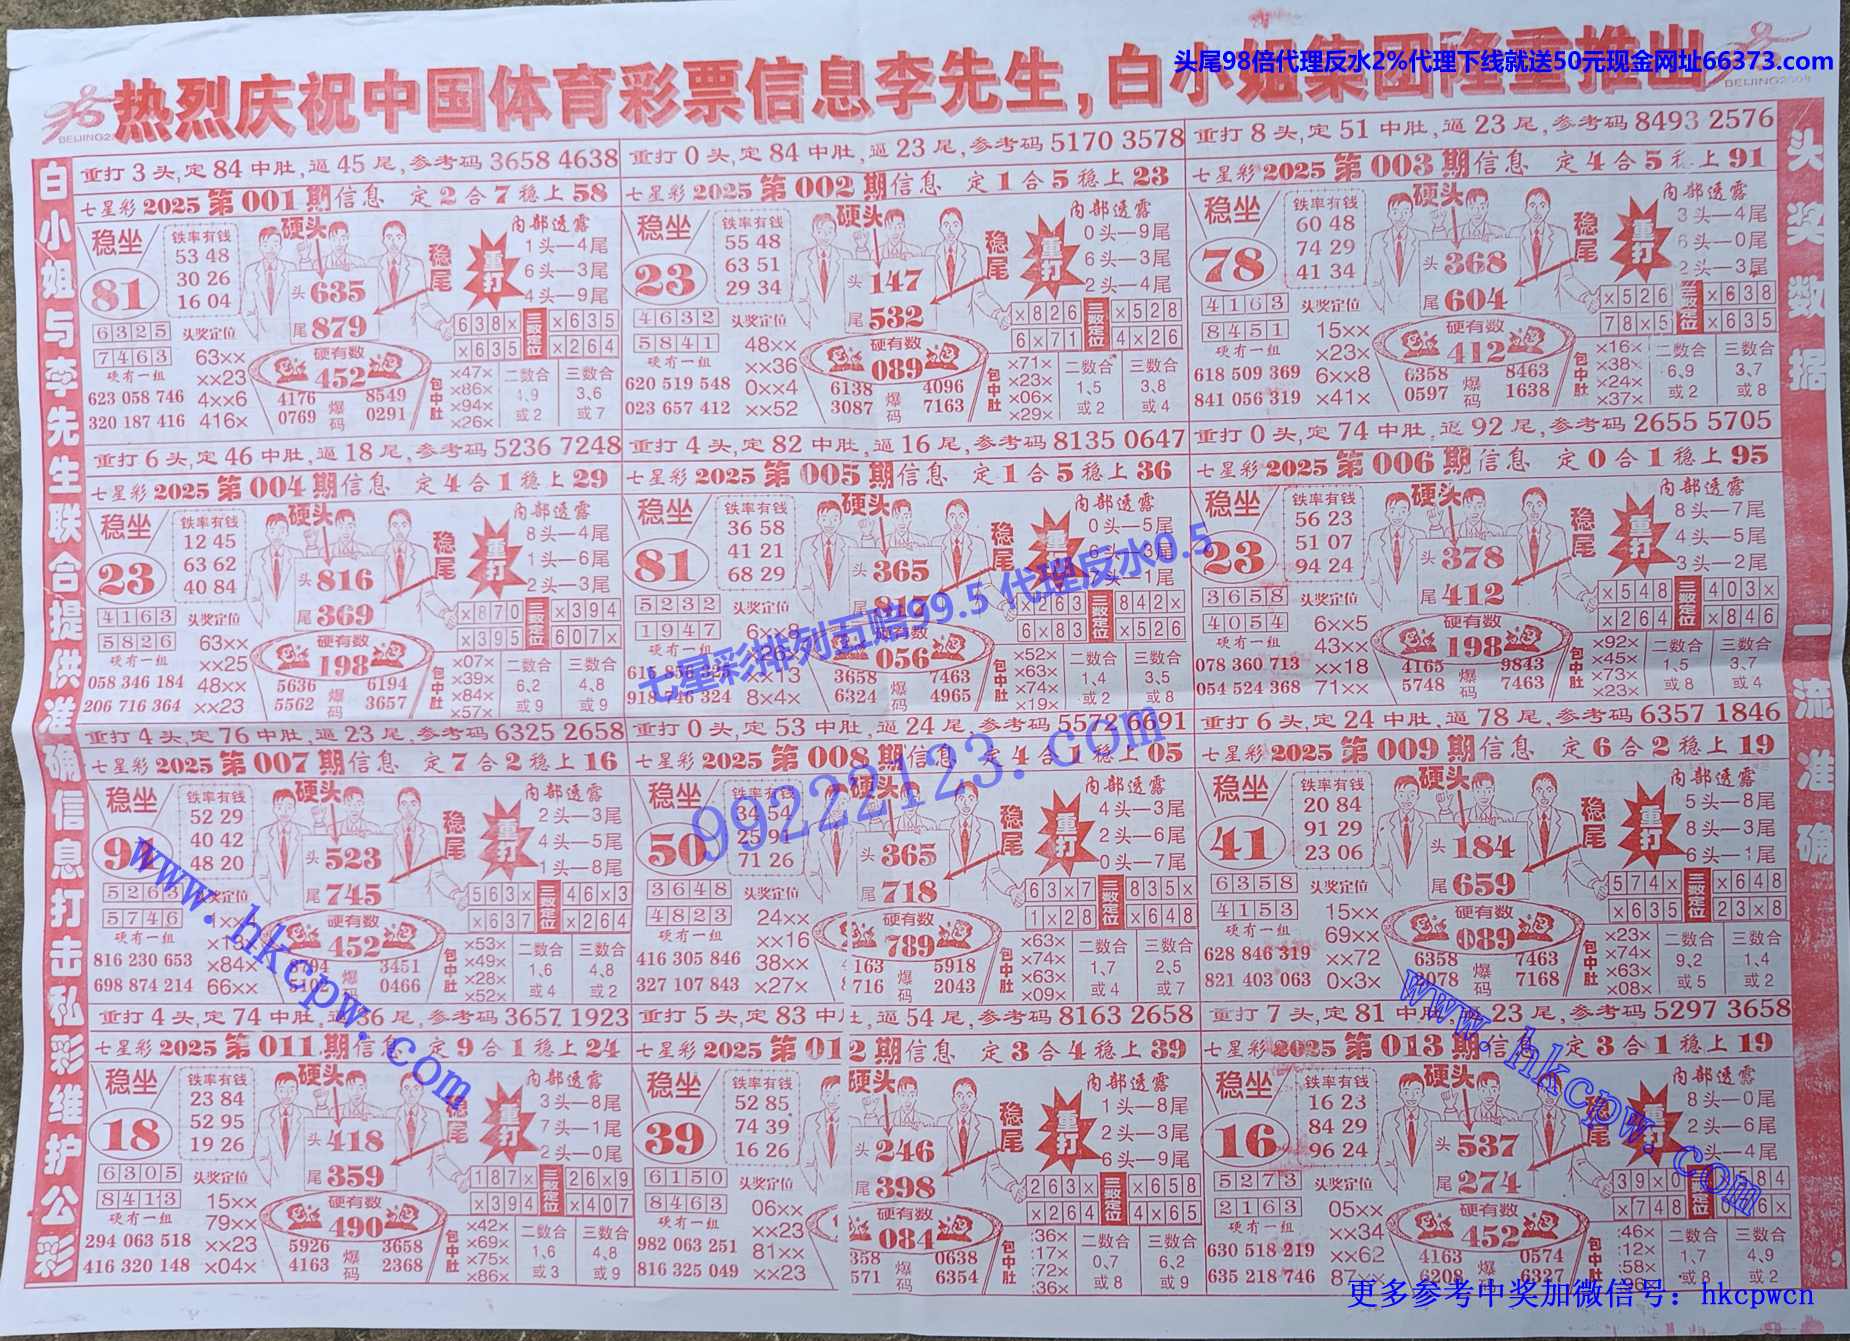 热烈庆祝中国体育彩票信息李先生,白小姐集团隆重推出
头尾98倍代理反水2%代理下线就送50元现金网址66373.com
白小姐与李先生联合提供准确信息打击私彩维护公彩
头奖数据一流准确
重打3头,定84中肚,逼45尾,参考码3658 4638
七星彩2025第001期信息 定2合7稳上58
稳坐
81
铁率有钱
53 48
30 26
16 04
硬头
头635
尾879
稳尾
重打
内部透露
1头—4尾
6头—3尾
4头—9尾
6325
7463
头奖定位
63××
××23
4××6
416×
硬有一组
623 058 746
320 187 416
硬有数
452
4176 8549
0769 爆码 0291
638× 三数定位 ×635
×635 ×264
包中肚
×47×
×86×
×94×
×26×
二数合
4,9
或2
三数合
3,6
或7
重打0头,定84中肚,逼23尾,参考码5170 3578
七星彩2025第002期信息 定1合5稳上23
稳坐
23
铁率有钱
55 48
63 51
29 34
硬头
头147
尾532
稳尾
重打
内部透露
0头—9尾
6头—3尾
2头—4尾
4632
5841
头奖定位
48××
××36
0××4
××52
硬有一组
620 519 548
023 657 412
硬有数
089
6138 4096
3087 爆码 7163
×826 三数定位 ×528
6×71 4×26
包中肚
×71×
×23×
×06×
×29×
二数合
1,5
或2
三数合
3,8
或4
重打8头,定51中肚,逼23尾,参考码8493 2576
七星彩2025第003期信息 定4合5稳上91
稳坐
78
铁率有钱
60 48
74 29
41 34
硬头
头368
尾604
稳尾
重打
内部透露
3头—4尾
6头—0尾
2头—3尾
4163
8451
头奖定位
15××
×23×
6××8
×41×
硬有一组
618 509 369
841 056 319
硬有数
412
6358 8463
0597 爆码 1638
×526 ×638
78×5 ×635
包中肚
×16×
×38×
×24×
×37×
二数合
6,9
或2
三数合
3,7
或8
重打6头,定46中肚,逼18尾,参考码5236 7248
七星彩2025第004期信息 定4合1稳上29
稳坐
23
铁率有钱
12 45
63 62
40 84
硬头
头816
尾369
稳尾
重打
内部透露
8头—4尾
1头—6尾
2头—3尾
4163
5826
头奖定位
63××
××25
48××
××23
硬有一组
058 346 184
206 716 364
硬有数
198
5636 6194
5562 爆码 3657
×870 三数定位 ×394
×395 607×
包中肚
×07×
×39×
×84×
×57×
二数合
6,2
或9
三数合
4,8
或9
重打4头,定82中肚,逼16尾,参考码8135 0647
七星彩2025第005期信息 定1合5稳上36
稳坐
81
铁率有钱
36 58
41 21
68 29
硬头
头365
稳尾
内部透露
0头—5尾
5232
1947
头奖定位
8×4×
硬有一组
硬有数
056
3658 7463
6324 爆码 4965
×263 三数定位 842×
6×83 ×526
包中肚
×52×
×63×
×74×
×19×
二数合
1,4
或2
三数合
3,5
或8
重打0头,定74中肚,逼92尾,参考码2655 5705
七星彩2025第006期信息 定0合1稳上95
稳坐
23
铁率有钱
56 23
51 07
94 24
硬头
头378
尾412
稳尾
重打
内部透露
8头—7尾
4头—5尾
3头—2尾
3658
4054
头奖定位
6××5
43××
××18
71××
硬有一组
078 360 713
054 524 368
硬有数
198
4165 9843
5748 爆码 7463
×548 三数定位 403×
×264 ×846
包中肚
×92×
×45×
×73×
×23×
二数合
1,5
或8
三数合
3,7
或4
重打4头,定76中肚,逼23尾,参考码6325 2658
七星彩2025第007期信息 定7合2稳上16
稳坐
铁率有钱
52 29
40 42
48 20
硬头
头523
尾745
稳尾
重打
内部透露
2头—3尾
4头—5尾
1头—8尾
5263
5746
×84×
66××
硬有一组
816 230 653
698 874 214
硬有数
452
3451
爆码 0466
563× 三数定位 46×3
×637 ×264
包中肚
×53×
×49×
×28×
×52×
二数合
1,6
或4
三数合
4,8
或2
重打0头,定53中肚,逼24尾,参考码5572 6691
七星彩2025第008期信息 定4合1稳上05
稳坐
50
铁率有钱
34 54
71 26
硬头
头365
尾718
稳尾
重打
内部透露
4头—3尾
2头—6尾
0头—7尾
3648
4823
头奖定位
24××
××16
38××
×27×
硬有一组
416 305 846
327 107 843
硬有数
789
163 5918
716 爆码 2043
63×7 三数定位 835×
1×28 ×648
包中肚
×63×
×74×
×63×
×09×
二数合
1,7
或4
三数合
2,5
或7
重打6头,定24中肚,逼78尾,参考码6357 1846
七星彩2025第009期信息 定6合2稳上19
稳坐
41
铁率有钱
20 84
91 29
23 06
硬头
头184
尾659
稳尾
重打
内部透露
5头—8尾
8头—3尾
6头—1尾
6358
4153
头奖定位
15××
69××
××72
0×3×
硬有一组
628 846 319
821 403 063
硬有数
089
6358 7463
2078 爆码 7168
574× 三数定位 ×648
×635 23×8
包中肚
×23×
×74×
×63×
×08×
二数合
9,2
或5
三数合
1,4
或2
重打4头,定74中肚,逼56尾,参考码3657 1923
七星彩2025第011期信息 定9合1稳上24
稳坐
18
铁率有钱
23 84
52 95
19 26
硬头
头418
尾359
稳尾
重打
内部透露
3头—8尾
7头—1尾
2头—0尾
6305
8413
头奖定位
15××
79××
××23
×04×
硬有一组
294 063 518
416 320 148
硬有数
490
5926 3658
4163 爆码 2368
187× 三数定位 26×9
×394 ×407
包中肚
×42×
×69×
×75×
×86×
二数合
1,6
或3
三数合
4,8
或9
重打5头,定83中肚,逼54尾,参考码8163 2658
七星彩2025第012期信息 定3合4稳上39
稳坐
39
铁率有钱
52 85
74 39
16 26
硬头
头246
尾398
稳尾
重打
内部透露
1头—8尾
2头—3尾
6头—9尾
6150
8463
头奖定位
06××
××23
81××
××23
硬有一组
982 063 251
816 325 049
硬有数
084
358 0638
571 爆码 6354
263× 三数定位 ×658
×264 4×65
包中肚
:36×
:17×
:72×
:36×
二数合
0,7
或8
三数合
6,2
或9
重打7头,定81中肚,逼23尾,参考码5297 3658
七星彩2025第013期信息 定3合1稳上19
稳坐
16
铁率有钱
16 23
84 29
96 24
硬头
头537
尾274
稳尾
重打
内部透露
8头—0尾
2头—6尾
头—4尾
5273
2163
头奖定位
05××
××34
××62
87××
硬有一组
630 518 219
635 218 746
硬有数
452
4163 0574
6208 6327
39×0 584
×748
包中肚
:46×
:12×
:58×
二数合
1,7
或8
三数合
4,9
或2
七星彩排列五赔99.5 代理反水0.5
99222123.com
www.hkcpw.com
www.hkcpw.com
更多参考中奖加微信号:hkcpwcn